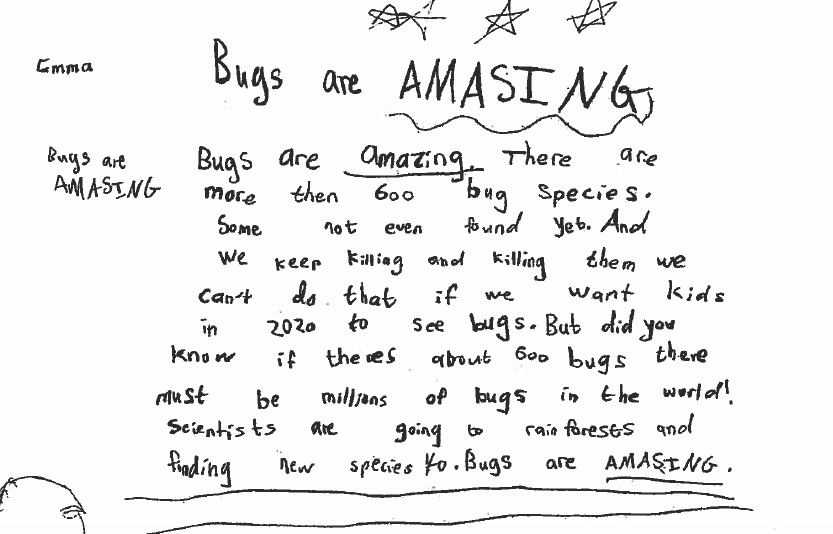 Emma
Bugs are AMASING
Bugs are
AMASING
Bugs are amazing. There are
more then 600 bug species.
Some not even found yet. And
we keep killing and killing them we
can't do that if we want kids
in 2020 to see bugs. But did you
know if theres about 600 bugs there
must be millions of bugs in the world!
Scientists are going to rain forests and
finding new species yo. Bugs are AMASING.